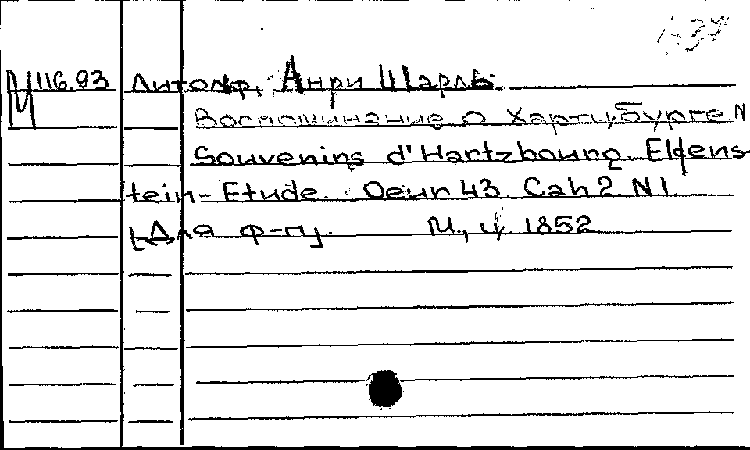 1-37
М 116.93 Литольф, Анри Шарль.
Воспоминание о Харцбурге N
Souvenirs d'Hartzbourg. Elfens-
tein-Etude. Oeuv 43 Cah 2 N 1.
[Для ф-п]. М., ц. 1852